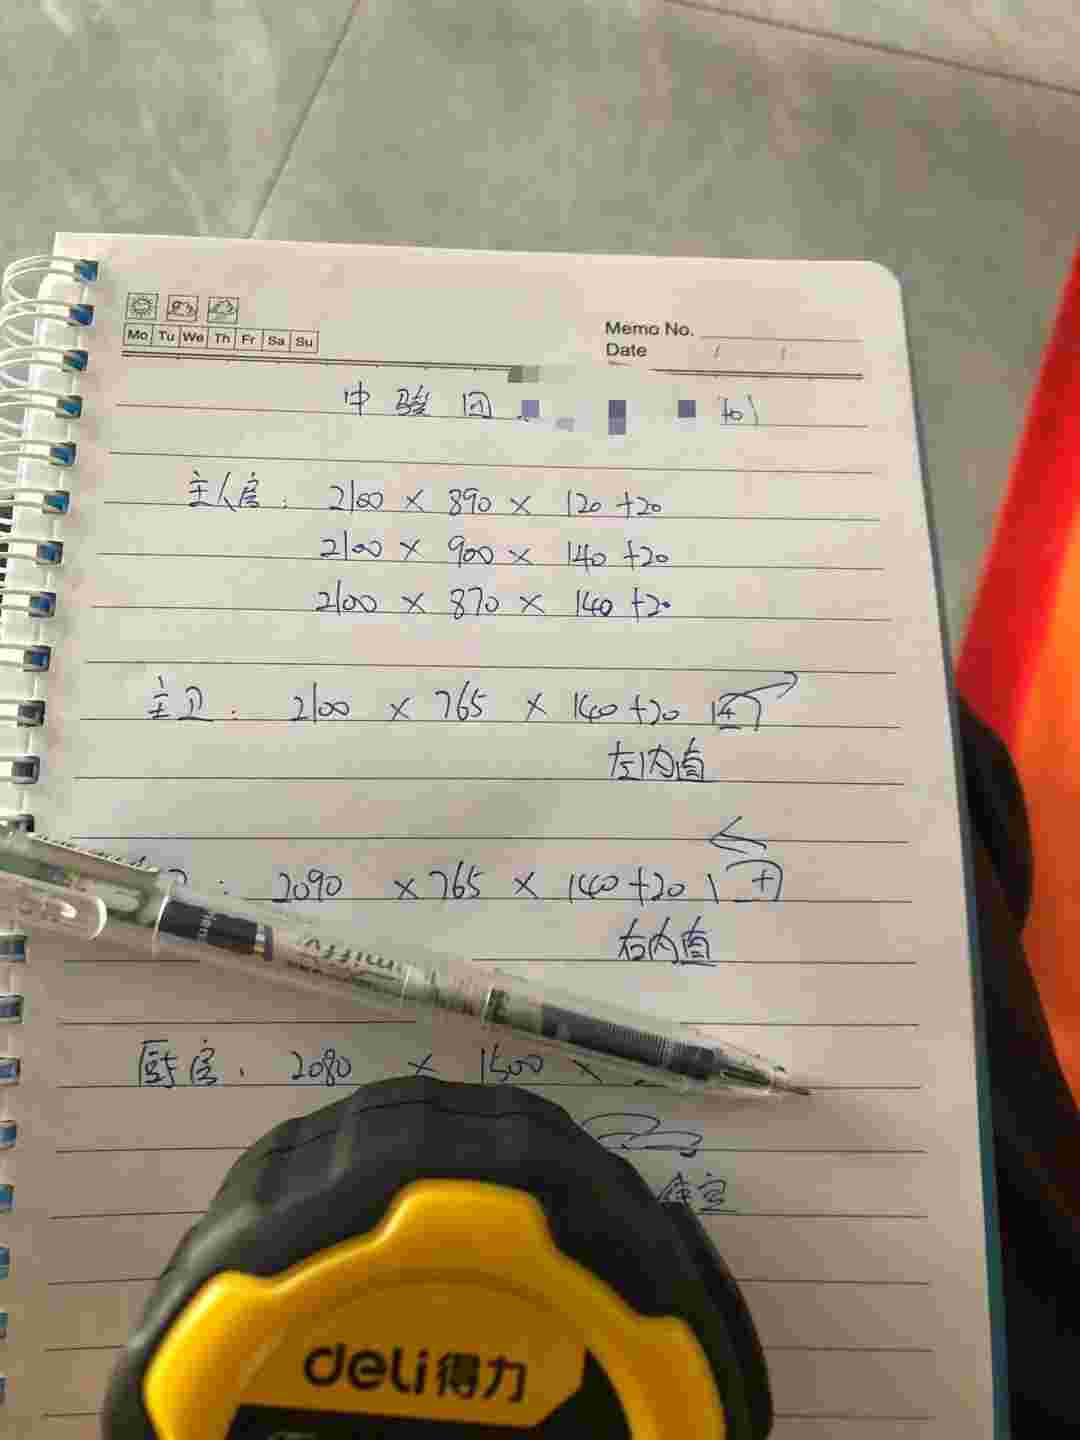 Memo No.
Mo Tu We Th Fr Sa Su
Date / /
中骏 701
主人房: 2100 × 890 × 120 +20
2100 × 900 × 140 +20
2100 × 870 × 140 +20
主卫: 2100 × 765 × 140 +20
左内直
: 2090 × 765 × 140 +20
右内直
miffy
厨房: 2080 × 1500 ×
deli 得力